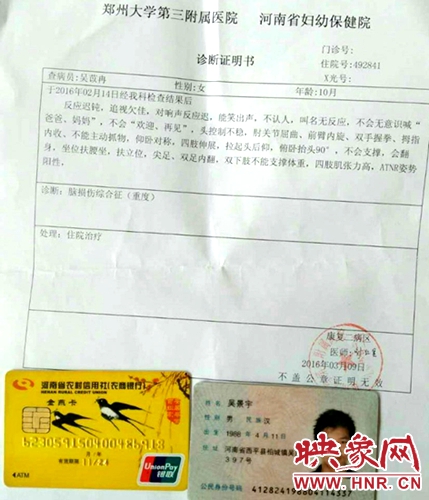 郑州大学第三附属医院 河南省妇幼保健院
诊断证明书
门诊号:
住院号: 492841
X光号:
查病员: 吴苡冉 性别: 女 年龄: 10月
于2016年02月14日经我科检查结果后
反应迟钝，追视欠佳，对响声反应迟，能笑出声，不认人，叫名无反应，不会无意识喊“
爸爸、妈妈”，不会“欢迎、再见”，头控制不稳，肘关节屈曲，前臂内旋，双手握拳，拇指
内收，不能主动抓物，仰卧对称，四肢伸展，拉起头后仰，俯卧抬头90°，不会支撑，会翻
身，坐位扶腰坐，扶立位，尖足，双足内翻，双下肢不能支撑体重，四肢肌张力高，ATNR姿势
阳性，
诊断: 脑损伤综合征（重度）
处理: 住院治疗
康复二病区
医师:
2016年03月09日
不盖公章证明无效
河南省农村信用社(农商银行)
HENAN RURAL CREDIT UNION
金燕卡
ATM
UnionPay
银联
吴景宇
男 民族 汉
1986 年 4 月 11 日
河南省西平县柏城镇吴
397号
公民身份号码
映象网
www.hnr.cn